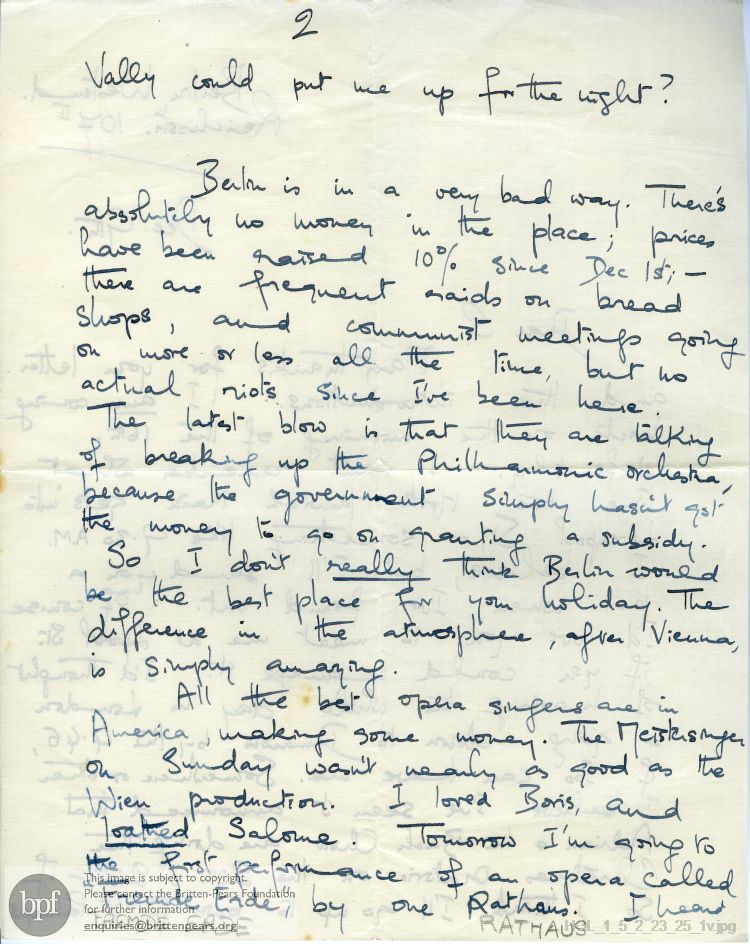 2
Vally could put me up for the night?
Berlin is in a very bad way. There's
absolutely no money in the place; prices
have been raised 10% since Dec 1st; —
there are frequent raids on bread
shops, and communist meetings going
on more or less all the time, but no
actual riots since I've been here.
The latest blow is that they are talking
of breaking up the Philharmonic orchestra,
because the government simply hasn't got
the money to go on granting a subsidy.
So I don't really think Berlin would
be the best place for your holiday. The
difference in the atmosphere, after Vienna,
is simply amazing.
All the best opera singers are in
America, making some money. The Meistersinger
on Sunday wasn't nearly as good as the
Wien production. I loved Boris, and
loathed Salome. Tomorrow I'm going to
the first performance of an opera called
"Fremde Erde", by one Rathaus. I heard
FREMDE ERDE RATHAUS
This image is subject to copyright.
Please contact the Britten-Pears Foundation
for further information
enquiries@brittenpears.org
bpf
1_5_2_23_25_1v.jpg